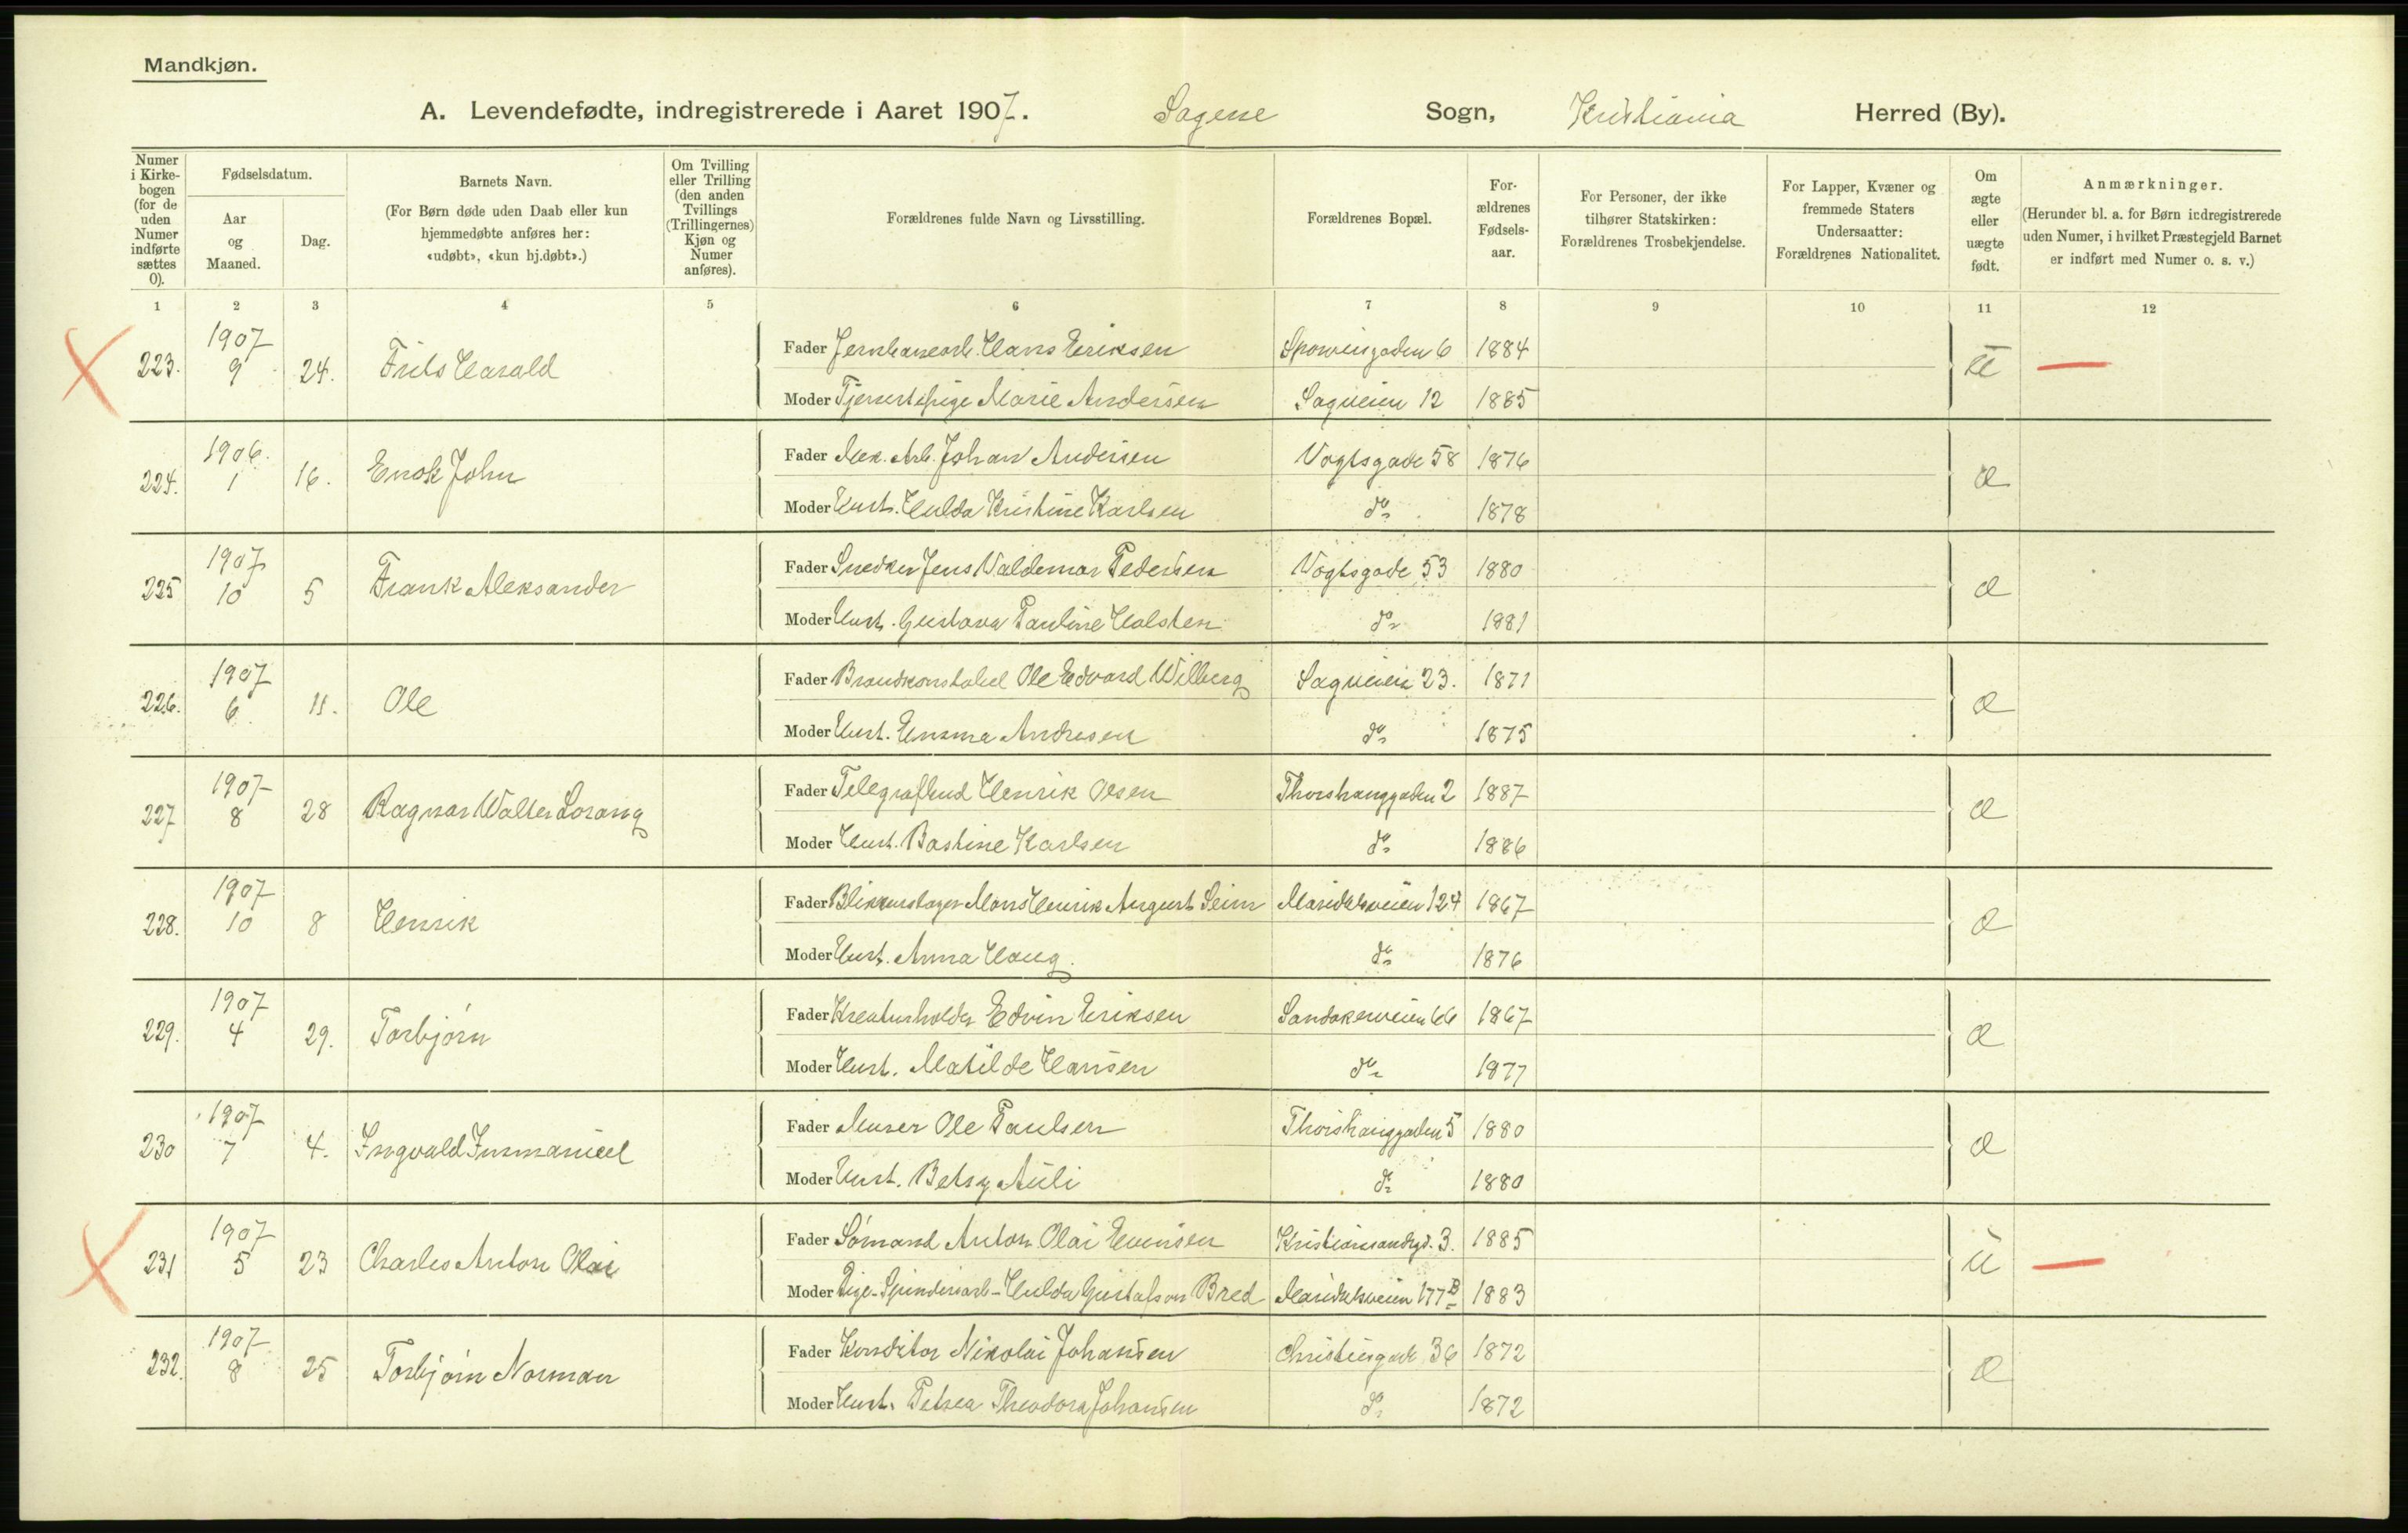 Mandkjøn.
A. Levendefødte, indregistrerede i Aaret 1907. Sagene Sogn, Kristiania Herred (By).
Numer i Kirke-bogen (for de uden Numer indførte sættes 0).
Fødselsdatum.
Aar og Maaned.
Dag.
Barnets Navn.
(For Børn døde uden Daab eller kun hjemmedøbte anføres her: «udøbt», «kun hj.døbt».)
Om Tvilling eller Trilling (den anden Tvillings (Trillingernes) Kjøn og Numer anføres).
Forældrenes fulde Navn og Livsstilling.
Forældrenes Bopæl.
For-ældrenes Fødsels-aar.
For Personer, der ikke tilhører Statskirken: Forældrenes Trosbekjendelse.
For Lapper, Kvæner og fremmede Staters Undersaatter: Forældrenes Nationalitet.
Om ægte eller uægte født.
Anmærkninger.
(Herunder bl. a. for Børn indregistrerede uden Numer, i hvilket Præstegjeld Barnet er indført med Numer o. s. v.)
1 2 3 4 5 6 7 8 9 10 11 12
223. 1907 9 24. Frits Harald
Fader Jernbanearb. Hans Eriksen 6 1884
Moder Tjenestepige Marie Andersen Sagveien 12 1885
224. 1906. 1 16. Enok John
Fader Mek. Arb. Johan Andersen Vogtsgade 58 1876 æ
Moder Hust. Hulda Kristine Karlsen do 1878
225 1907 10 5 Frank Aleksander
Fader Snedker Jens Valdemar Pedersen Vogtsgade 53 1880 æ
Moder Hust. Gustava Pauline Halsten do 1881
226. 1907 6 11. Ole
Fader Brandkonstabel Ole Edvard Wilberg Sagveien 23. 1871 æ
Moder Hust. Emma Andresen do 1875
227 1907 8 28 Ragnar Walter Lorang
Fader Telegrafbud Henrik Olsen Thorshauggaden 2 1887 æ
Moder Hust. Bastine Karlsen do 1886
228. 1907 10 8 Henrik
Fader Blikkenslager Mons Henrik August Seim Maridalsveien 124 1867 æ
Moder Hust. Anna Haug. do 1876
229. 1907 4 29. Torbjørn
Fader Kreaturholder Edvin Eriksen Sandakerveien 66 1867 æ
Moder Hust. Matilde Hansen do 1877
230 1907 7 4. Ingvald Immanuel
Fader Murer Ole Paulsen Thorshauggaden 5 1880 æ
Moder Hust. Betsy Auli do 1880
231 1907 5 23 Charles Anton Olai
Fader Sømand Anton Olai Evensen Kristiansandsgd. 3. 1885 u
Moder Pige-Spinderiarb- Hulda Gustafson Bred Maridalsveien 177B 1883
232. 1907 8 25 Torbjørn Norman
Fader Konditor Nikolai Johansen Christiesgade 36 1872 æ
Moder Hust. Petrea Theodora Johansen do 1872